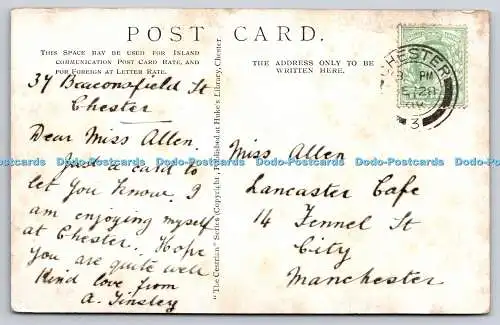 POST CARD.
THIS SPACE MAY BE USED FOR INLAND
COMMUNICATION POST CARD RATE, AND
FOR FOREIGN AT LETTER RATE.
THE ADDRESS ONLY TO BE
WRITTEN HERE.
CHESTER
PM
3
37 Beaconsfield St
Chester
Dear Miss Allen.
Just a card to
let you know. I
am enjoying myself
at Chester. Hope
you are quite well
Kind love from
A. Tinsley
"The Cestrian" Series (Copyright). Published at Huke's Library, Chester.
Miss Allen
Lancaster Cafe
14 Fennel St
City
Manchester
Dodo-Postcards Dodo-Postcards Dodo-Postcards Dodo-Postcards Dodo-Postcards